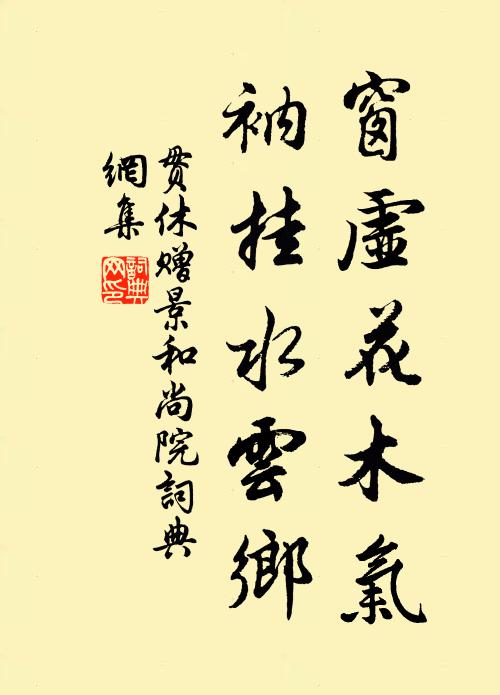 窗虛花木氣
衲挂水雲鄉
貫休贈景和尚院詞典
網集
詞典網印